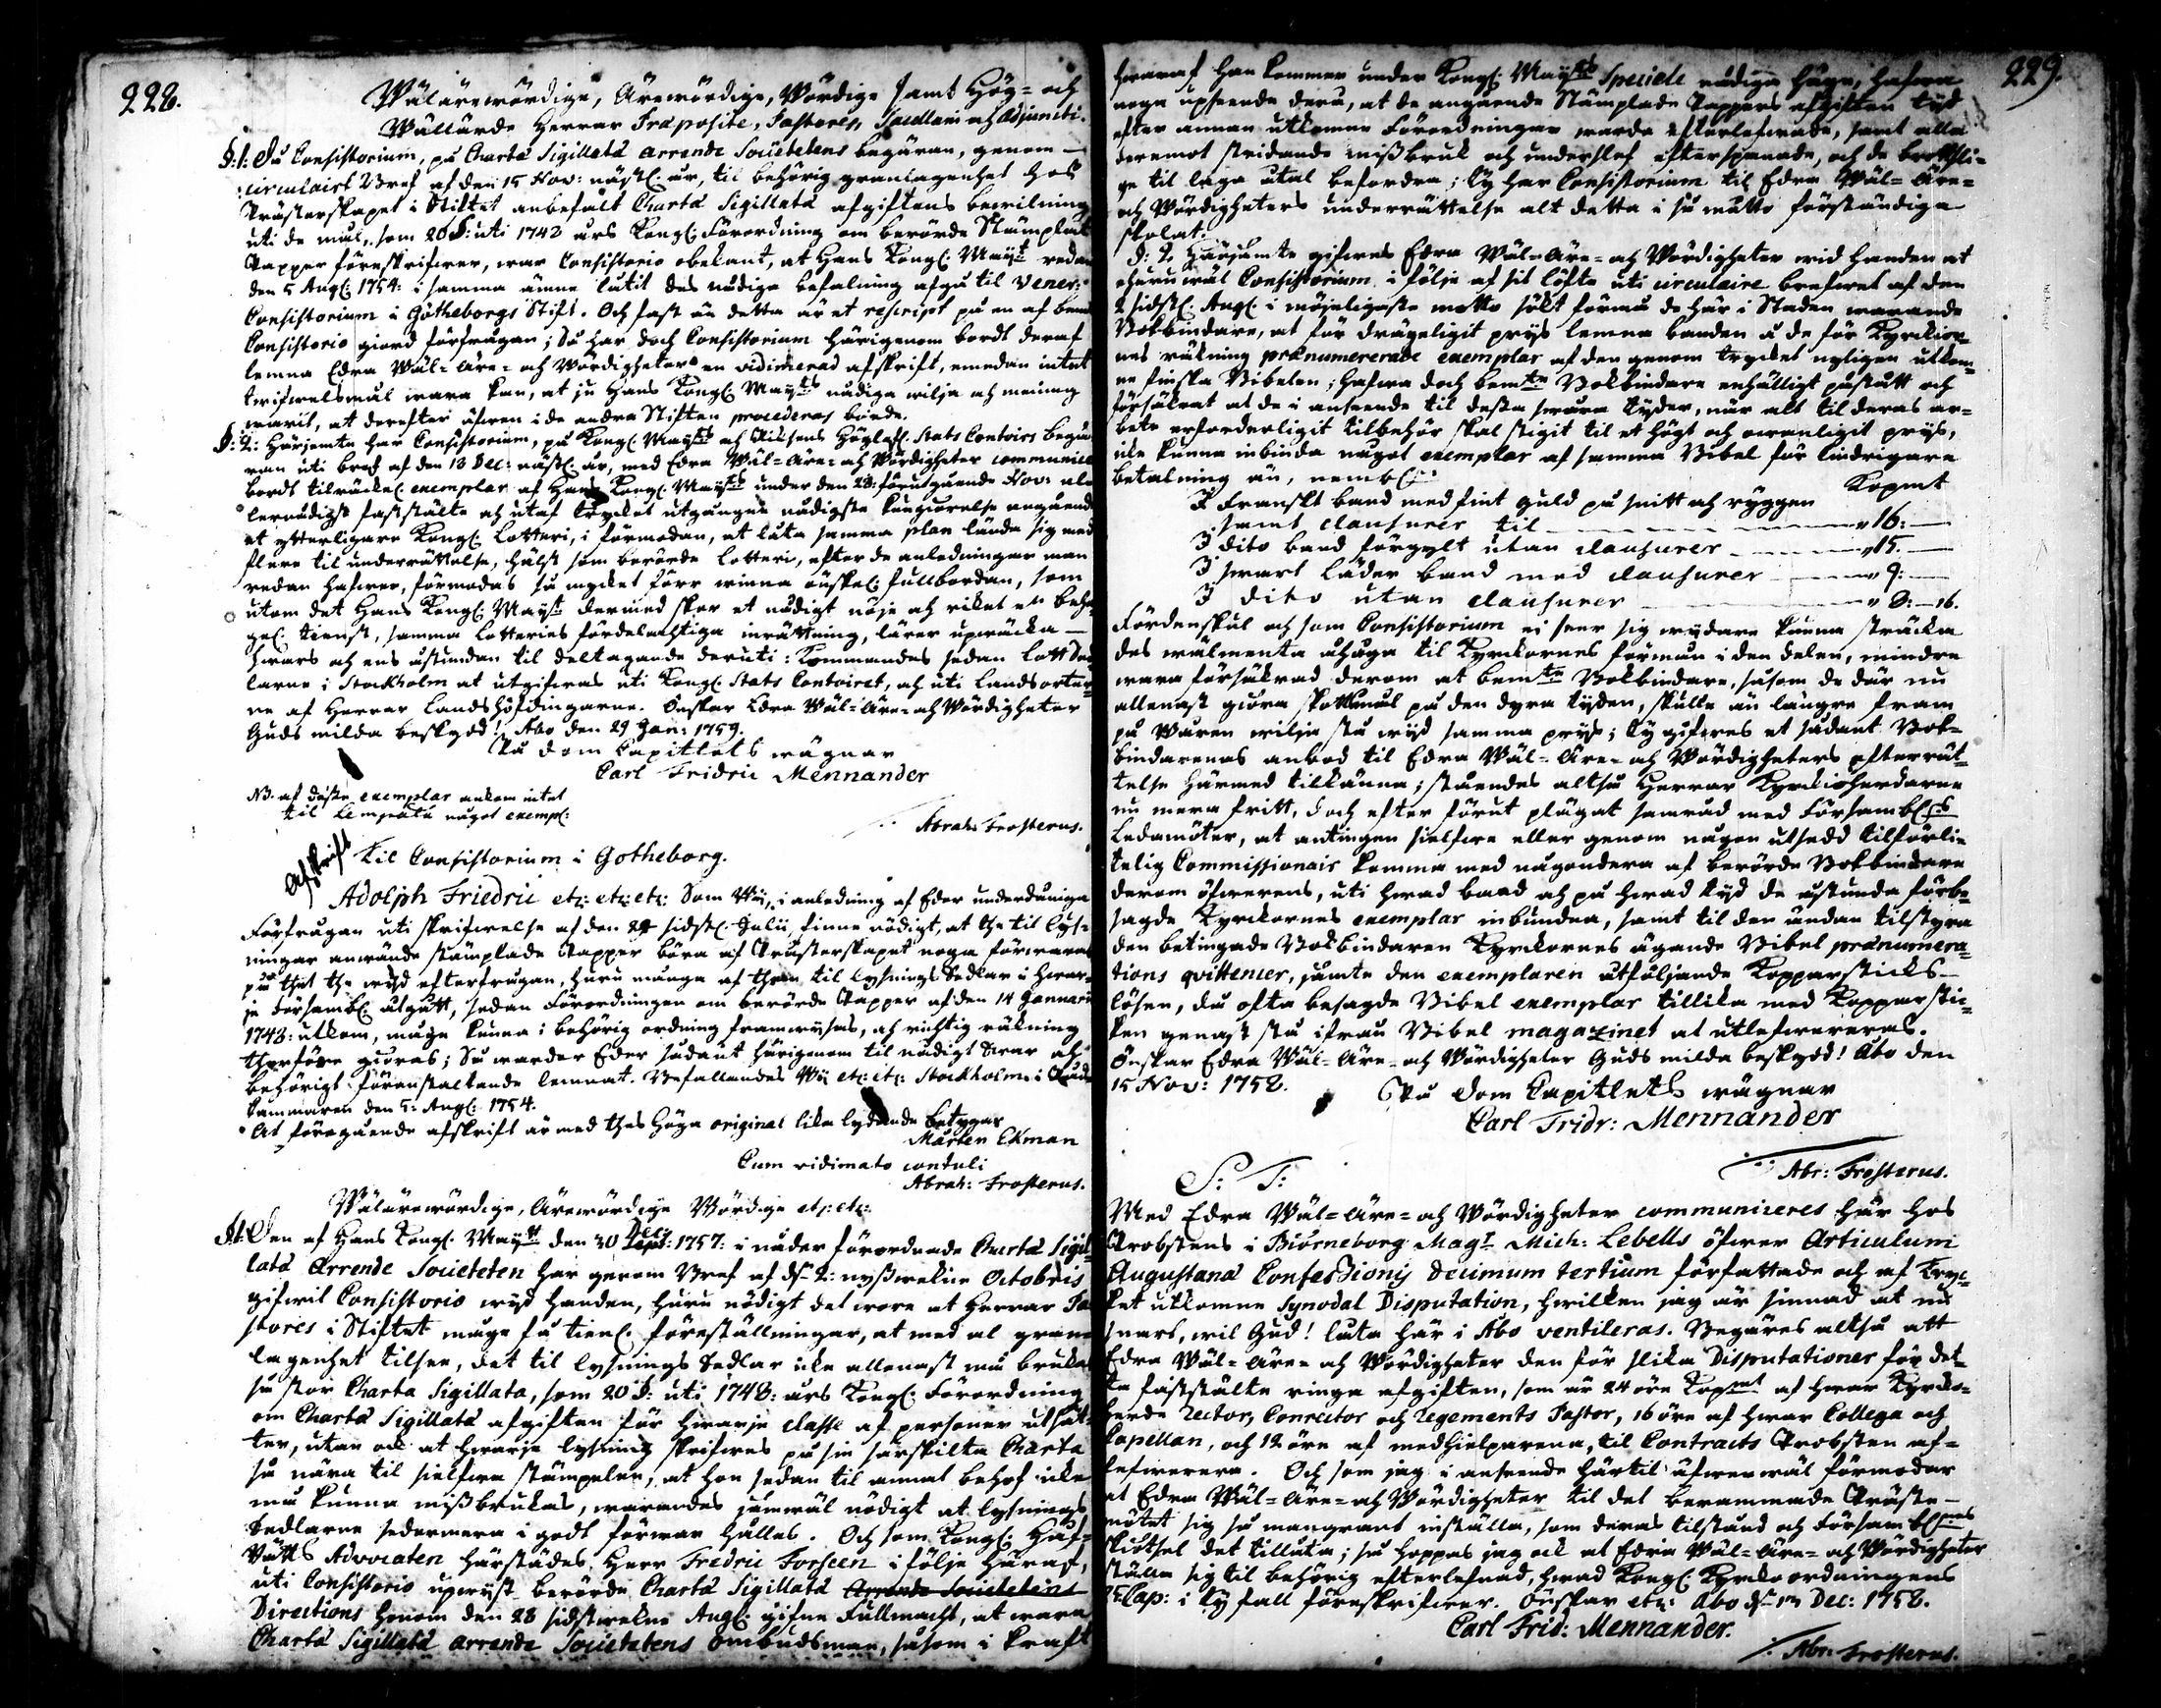 228.
Wälärewördige, Ärewördige, Wördige samt Hög- och
Wällärde Herrar Præposite, Pastores, Sacellani och Adjuncti.
§:1: Då Consistorium, på Charta Sigillata Arrende Societetens begäran, genom
circulairt Bref af den 15 Nov: näst: år, til behörig granlagenhet hos
Prästerskapet i Stiftet anbefalt Charta Sigillata afgiftens bewilning
uti de mål, som 20 §: uti 1748 års Kongl: Förordning om berörde Stämplat
Papper föreskrifwer, war Consistorio obekant, at Hans Kongl: Mayt redan
den 5 Aug: 1754: i samma ämne låtit des nådiga befalning afgå til Vener:
Consistorium i Götheborgs Stift. Och fast än detta är et rescript på en af bem:
Consistorio giord förfrågan; Så har doch Consistorium härigenom bordt deraf
lemna Edra Wäl- Äre- och Wördigheter en vidimerad afskrift, emedan intet
twifwelsmål wara kan, at ju Hans Kongl: Mayts nådiga wilja och mening
warit, at derefter äfwen i de andra Stiften procederas borde.
§: 2: Härjemte har Consistorium, på Kongl: Mayts och Riksens Höglofl: Stats Contoirs begä-
ran uti bref af den 13 Dec: näst: år, med Edra Wäl- Äre- och Wördigheter communice
bordt tilräckl: exemplar af Hans Kongl: Mayts under den 28: förutgående Nov: al-
lernådigst faststälte och utaf trycket utgångne nådigste kungiörelse angående
et ytterligare Kongl: Lotteri, i förmodan, at låta samma plan lända sig med
flere til underrättelse, hälst som berörde Lotteri, efter de anledningar man
redan hafwer, förmodas så mycket förr winna önskel: fullbordan, som
utom det Hans Kongl: Mayt dermed sker et nådigt nöje och riket en beha-
gel: tienst, samma Lotteries fördelachtiga inrättning, lärer upwäcka
hwars och ens åstundan til deltagande deruti: Kommandes sedan Lottsed-
larne i Stockholm at utgifwas uti Kongl: Stats Contoiret, och uti Landsorter-
ne af Herrar Landshöfdingarne. Önskar Edra Wäl- Äre- och Wördigheter
Guds milda beskydd! Åbo den 29 Jan: 1759.
På Dom Capitlets wägnar
Carl Fridric Mennander
NB. af desse exemplar ankom intet
til Lempälä något exempl:
Abrah: Frosterus.
Afskrift
Til Consistorium i Gotheborg.
Adolph Friedric etc: etc: etc: Som Wij, i anledning af Eder underdåniga
Förfrågan uti skrifwelse af den 24 sidstl: Julii, finne nödigt, at the til lys-
ningar anwände stämplade Papper böra af Prästerskapet noga förwaras
på thet the wid efterfrågan, huru många af them til lysnings Sedlar i hwar-
je Församl: åtgått, sedan Förordningen om berörde Papper af den 14 Januarii
1748: utkom, måge kunna i behörig ordning framwisas, och richtig räkning
therföre giöras; Så warder Eder sådant härigenom til nådigt Swar och
behörigt föranstaltande lemnat. Befallandes Wij etc: etc: Stockholm i Råd-
kammaren den 5: Aug: 1754.
At föregående afskrift är med thes höga original lika lydande betygar
Mårten Ekman
Cum vidimato contuli
Abrah: Frosterus.
Wälärewördige, Ärewördige Wördige etc: etc:
§1. Den af Hans Kongl: Mayt den 30 Sept: 1757: i nåder förordnade Charta Sigil-
lata Arrende Societeten har genom Bref af d: 2: nysswekne Octobris
gifwit Consistorio wid handen, huru nödigt det wore at Herrar Pa-
stores i Stiftet måge få tienl: föreställningar, at med al gran-
lagenhet tilse, det til lysnings Sedlar icke allenast må brukas
så stor Charta Sigillata, som 20 §: uti 1748: års Kongl: Förordning
om Charta Sigillata afgiften för hwarje classe af personer utsät-
ter, utan ock at hwarje lysning skrifwes på sin särskilta Charta
så nära til sielfwa stämpelen, at hon sedan til annat behof icke
må kunna missbrukas, warandes jämwäl nödigt at lysnings
Sedlarne sedermera i godt förwar hålles. Och som Kongl: Håf-
Rätts Advocaten härstädes Herr Fredric Forseen i följe häraf,
uti Consistorio upwist berörde Charta Sigillata Arrende Societetens
Directions honom den 28 sidstwekne Aug: gifne Fullmacht, at wara
Charta Sigillata Arrende Societetens ombudsman, såsom i kraft
229.
hwaraf han kommer under Kongl: Mayts Speciele nådiga hägn, hafwa
noga upseende derå, at de angående Stämplade Pappers afgiften tijd
efter annan utkomne Förordningar warda efterlefwade, samt alla
deremot stridande missbruk och underslef efterspanade, och de brottsli-
ge til laga åtal befordra; Ty har Consistorium til Edra Wäl- Äre-
och Wördigheters underrättelse alt detta i så måtto förständiga
skolat.
§: 2. Härjämte gifwes Edra Wäl- Äre- och Wördigheter wid handen at
ehuruwäl Consistorium i följe af sit löfte uti circulaire brefwet af den
2 sidstl: Aug: i möjeligaste motto sökt förmå de här i Staden warande
Bokbindare, at för drägeligit prijs lemna banden å de för Kyrkior-
nes räkning prænumererade exemplar af den genom trycket nyligen utkom-
ne finska Bibelen; hafwa doch bemte Bokbindare enhälligt påstått och
försäkrat at de i anseende til dessa swåra tijder, när alt til deras ar-
bete erforderligit tilbehör skal stigit til et högt och owanligit prijs,
icke kunna inbinda något exemplar af samma Bibel för lindrigare
betalning än, nembl:
Kopmt
I Franskt band med fint guld på snitt och ryggen
samt clausurer til - - - " 16: —
I dito band förgylt utan clausurer - - - " 15. —
I swart läder band med clausurer - - - " 9: —
I dito utan clausurer - - - " 8: — 16.
Fördenskul och som Consistorium ei seer sig widare kunna sträcka
des wälmenta åhåga til Kyrckornes förmån i den delen, mindre
wara försäkrad derom at bemte Bokbindare, såsom de där nu
allenast giöra skottsmål på den dyra tijden, skulle än längre fram
på Waren wilja stå wid samma prijs; Ty gifwes et sådant Bok-
bindarenas anbod til Edra Wäl- Äre- och Wördigheters efterrät-
telse härmed tilkänna; ståendes altså Herrar Kyrkioherdarne
nu mera fritt, doch efter förut plägat samråd med Församl:s
Ledamöter, at antingen sielfwe eller genom någon utsedd tilförli-
telig Commissionair komma med någondera af berörde Bokbindare
derom öfwerens, uti hwad band och på hwad tijd de åstunda förbe-
sagde Kyrckornes exemplar inbundna, samt til den ändan tilstyra
den betingade Bokbindaren Kyrckornes ägande Bibel prænumera-
tions qvittencer, jämte den exemplaren åtföljande Kopparsticks-
lösen, då ofta besagde Bibel exemplar tillika med Kopparstic-
ken genast stå ifrån Bibel magazinet at utlefwereras.
Önskar Edra Wäl- Äre- och Wördigheter Guds milda beskydd! Åbo den
15 Nov: 1758.
På Dom Capitlets wägnar
Carl Fridr: Mennander
Abr: Frosterus.
S: T:
Med Edra Wäl- Äre- och Wördigheter communiceres här hos
Probstens i Biörneborg Magr Mich: Lebells öfwer Articulum
Augustanæ Confessionis Decimum tertium författade och af tryc-
ket utkomne Synodal Disputation, hwilken jag är sinnad at nu
snart, wil Gud! låta här i Åbo ventileras. Begäres altså att
Edra Wäl- Äre- och Wördigheter den för slika Disputationer för det-
ta fastställte ringa afgiften, som är 24 öre Kopmt af hwar Kyrko-
herde Rector, Conrector och Regements Pastor, 16 öre af hwar Collega och
Capellan, och 12 öre af medhielparena, til Contracts Probsten af-
lefwerera. Och som jag i anseende härtil äfwenwäl förmodar
at Edra Wäl- Äre- och Wördigheter til det berammade Präste-
mötet sig så mangrant inställa, som deras tilstånd och Församl:nes
skiötsel det tillåta; så hoppas jag ock at Edra Wäl- Äre- och Wördigheter
ställa sig til behörig efterlefnad, hwad Kongl: Kyrckoordningens
Cap: i ty fall föreskrifwer. Önskar etc: Åbo d: 13 Dec: 1758.
Carl Frid: Mennander.
Abr: Frosterus.